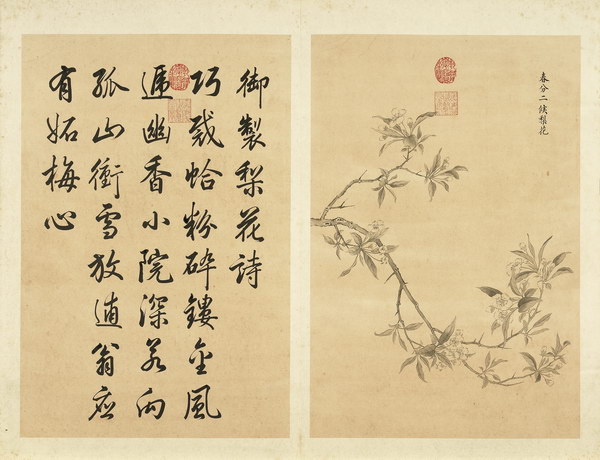 春分二候棃花
御製梨花詩
巧裁蛤粉碎鏤金風
遞幽香小院深若向
孤山衝雪放逋翁應
有妬梅心